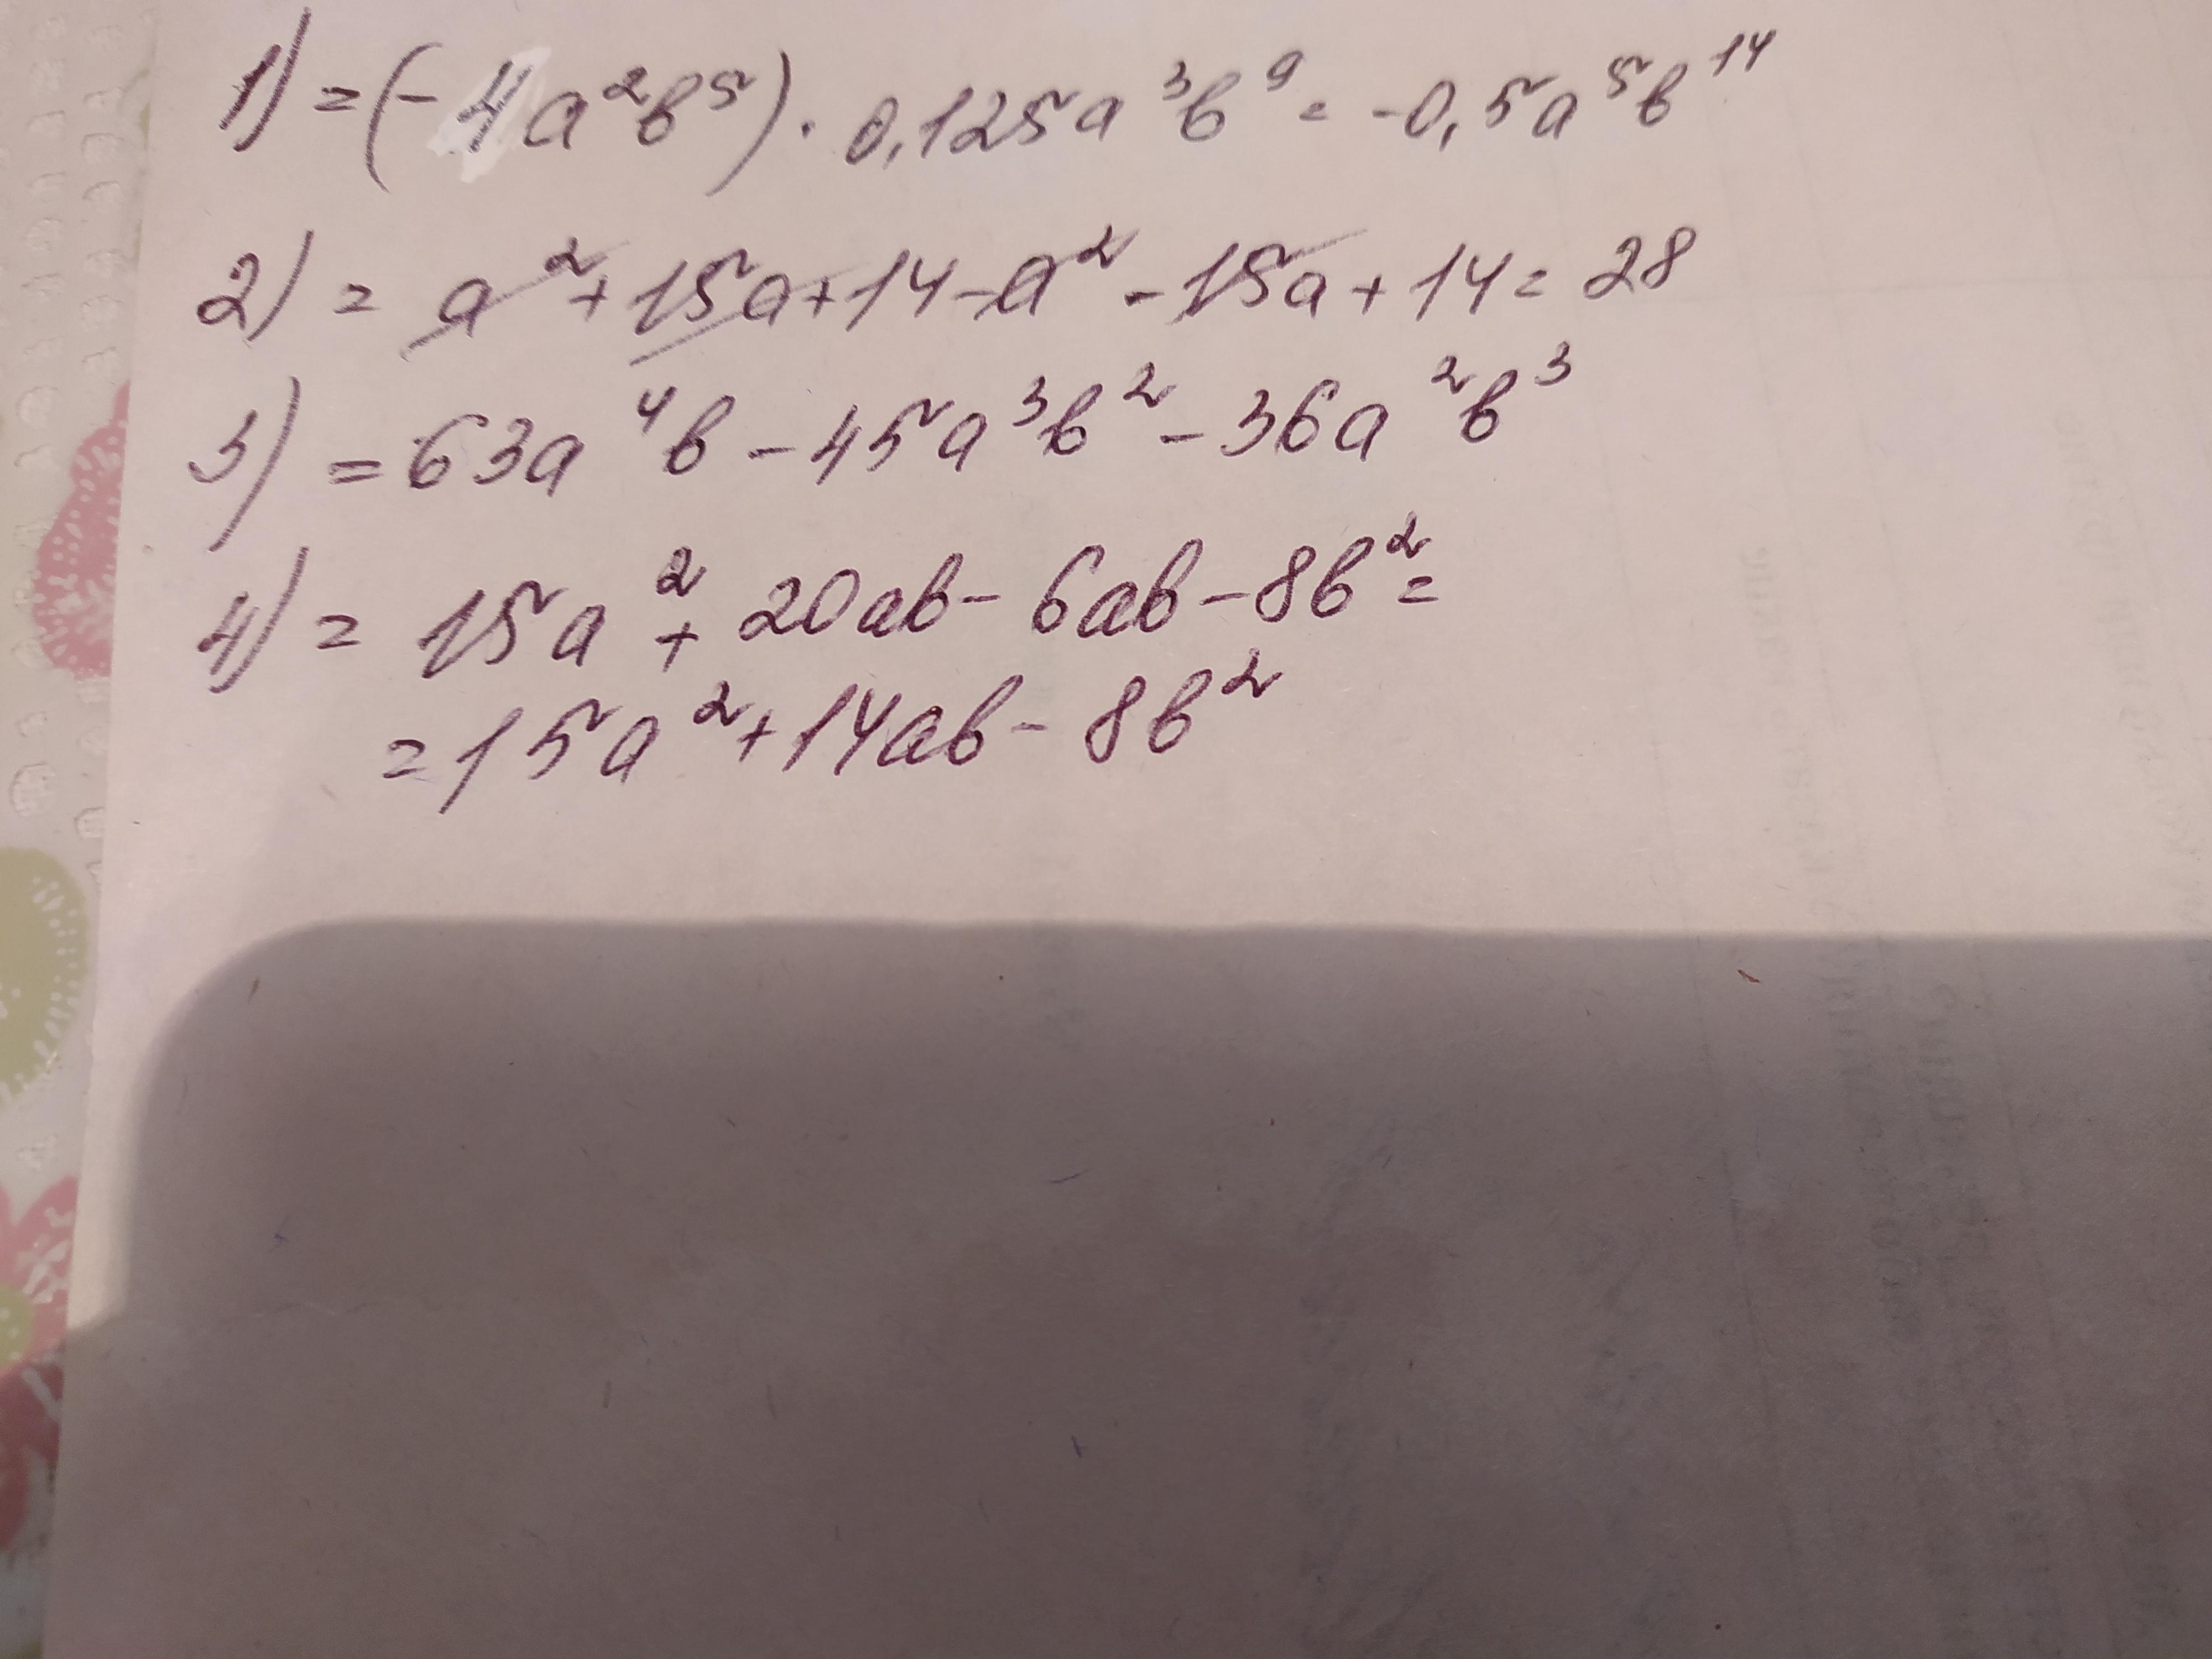 1) = (-4a²b⁵) · 0,125a³b⁹ = -0,5a⁵b¹⁴
2) = a² + 15a + 14 - a² - 15a + 14 = 28
3) = 63a⁴b - 45a³b² - 36a²b³
4) = 15a² + 20ab - 6ab - 8b² =
= 15a² + 14ab - 8b²